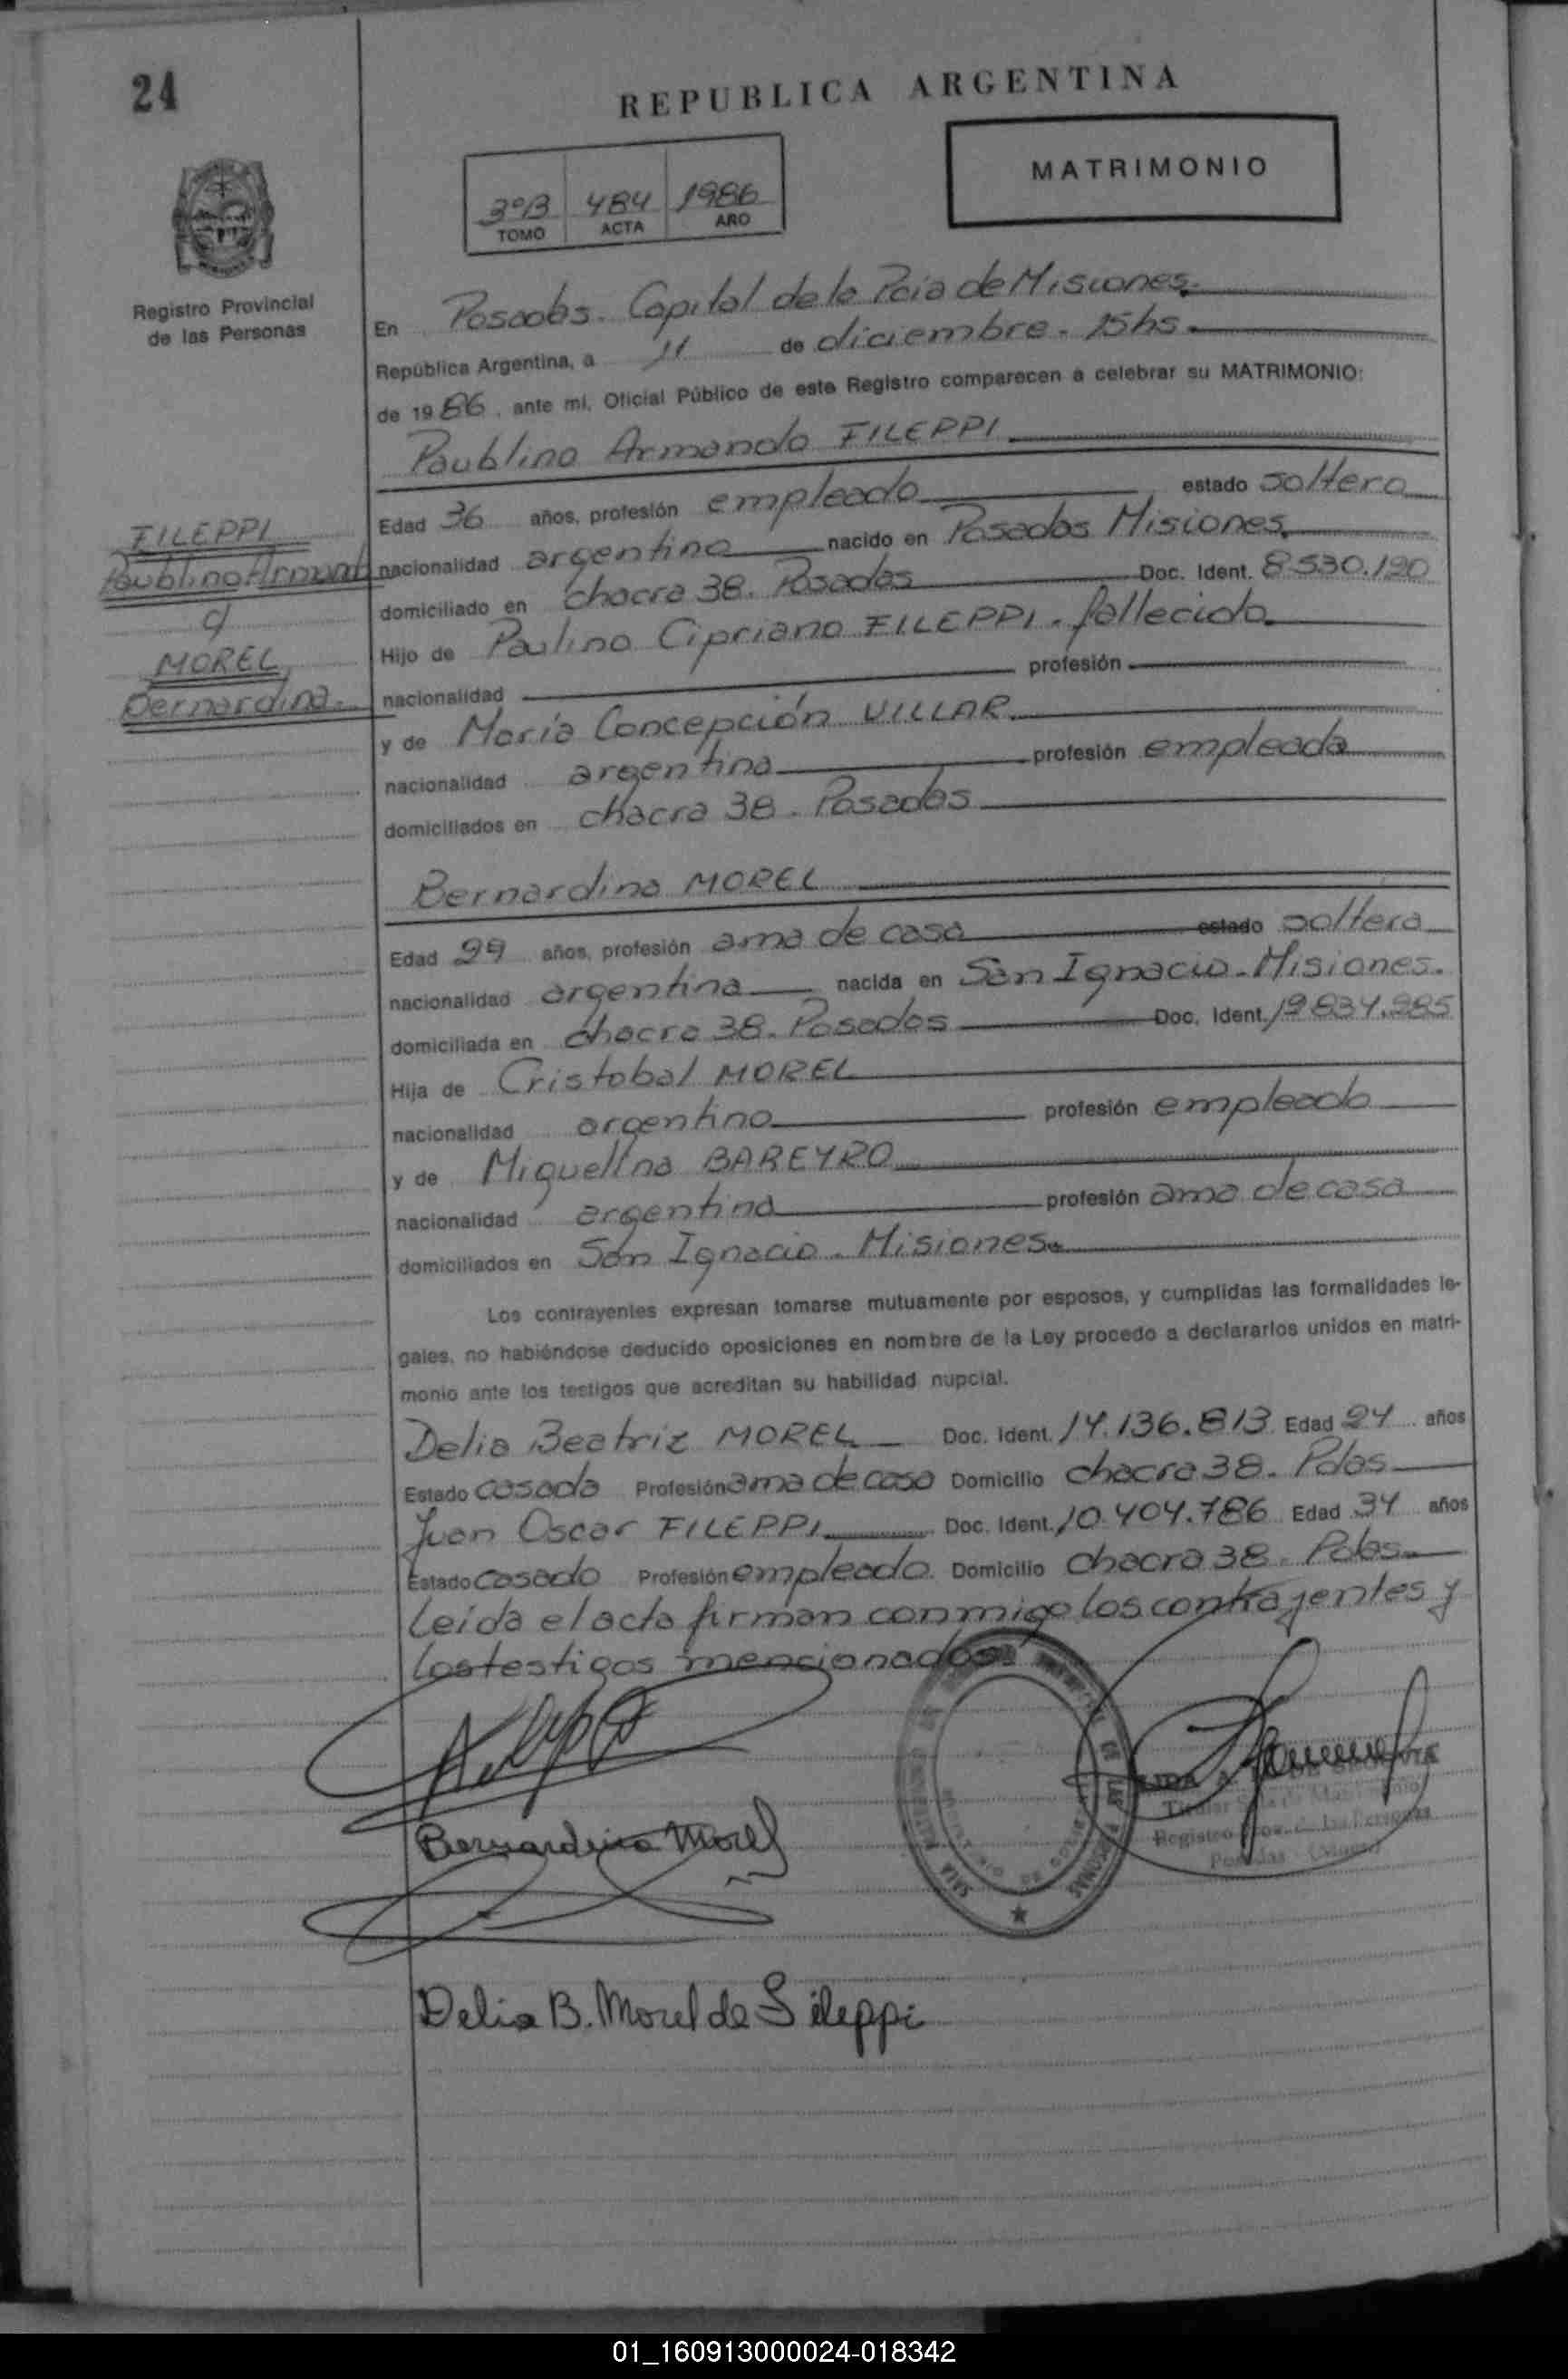 24
REPUBLICA ARGENTINA
MATRIMONIO
3ºB 484 1986
TOMO ACTA AÑO
Registro Provincial
de las Personas
En Posadas. Capital de la Pcia de Misiones.
República Argentina, a 11 de diciembre. 15hs.
de 1986, ante mí, Oficial Público de este Registro comparecen a celebrar su MATRIMONIO:
Paublino Armando FILEPPI
Edad 36 años, profesión empleado estado soltero
nacionalidad argentino nacido en Posadas Misiones.
domiciliado en chacra 38. Posadas Doc. Ident. 8.530.190
Hijo de Paulino Cipriano FILEPPI. fallecido.
nacionalidad profesión
y de María Concepción VILLAR.
nacionalidad argentina profesión empleada
domiciliados en chacra 38. Posadas
FILEPPI
Paublino Armando
c/
MOREL
Bernardina.
Bernardina MOREL
Edad 29 años, profesión ama de casa estado soltera
nacionalidad argentina nacida en San Ignacio. Misiones.
domiciliada en chacra 38. Posadas Doc. Ident.
Hija de Cristobal MOREL
nacionalidad argentino profesión empleado
y de Miguelina BAREYRO
nacionalidad argentina profesión ama de casa
domiciliados en San Ignacio. Misiones.
Los contrayentes expresan tomarse mutuamente por esposos, y cumplidas las formalidades le-
gales, no habiéndose deducido oposiciones en nombre de la Ley procedo a declararlos unidos en matri-
monio ante los testigos que acreditan su habilidad nupcial.
Delia Beatriz MOREL Doc. Ident. 14.136.813 Edad 24 años
Estado casada Profesión ama de casa Domicilio chacra 38. Pdas
Juan Oscar FILEPPI Doc. Ident. 10.404.786 Edad 34 años
Estado casado Profesión empleado. Domicilio chacra 38. Pdas.
Leida el acta firman conmigo los contrayentes y
los testigos mencionados.
Bernardina Morel
Registro Prov. de las Personas
Posadas (Mnes.)
Delia B. Morel de Fileppi
01_160913000024-018342